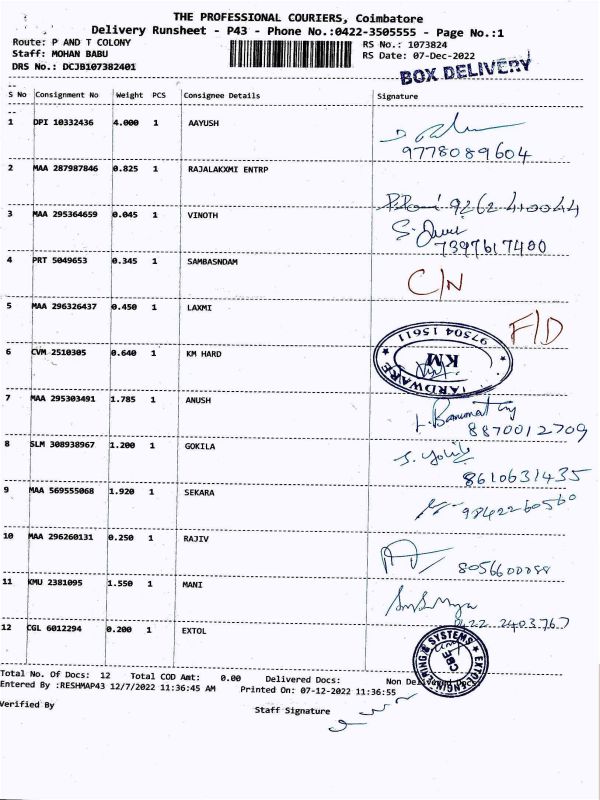 THE PROFESSIONAL COURIERS, Coimbatore
Delivery Runsheet - P43 - Phone No.:0422-3505555 - Page No.:1
Route: P AND T COLONY
Staff: MOHAN BABU
DRS No.: DCJB107382401
RS No.: 1073824
RS Date: 07-Dec-2022
BOX DELIVERY
S No Consignment No Weight PCS Consignee Details Signature
1 DPI 10332436 4.000 1 AAYUSH
9778089604
2 MAA 287987846 0.825 1 RAJALAKXMI ENTRP
9262410044
3 MAA 295364659 0.045 1 VINOTH
7397617480
4 PRT 5049653 0.345 1 SAMBASNDAM C/N
5 MAA 296326437 0.450 1 LAXMI F/D
6 CVM 2510305 0.640 1 KM HARD
KM HARDWARE 97504 15611
7 MAA 295303491 1.785 1 ANUSH
8870012709
8 SLM 308938967 1.200 1 GOKILA
8610631435
9 MAA 569555068 1.920 1 SEKARA
9842260560
10 MAA 296260131 0.250 1 RAJIV
8056600088
11 KMU 2381095 1.550 1 MANI
0422 2403767
12 CGL 6012294 0.200 1 EXTOL
EXTOL ENGINEERING & SYSTEMS CBE
Total No. Of Docs: 12 Total COD Amt: 0.00 Delivered Docs: Non Delivered Docs
Entered By :RESHMAP43 12/7/2022 11:36:45 AM Printed On: 07-12-2022 11:36:55
Verified By
Staff Signature